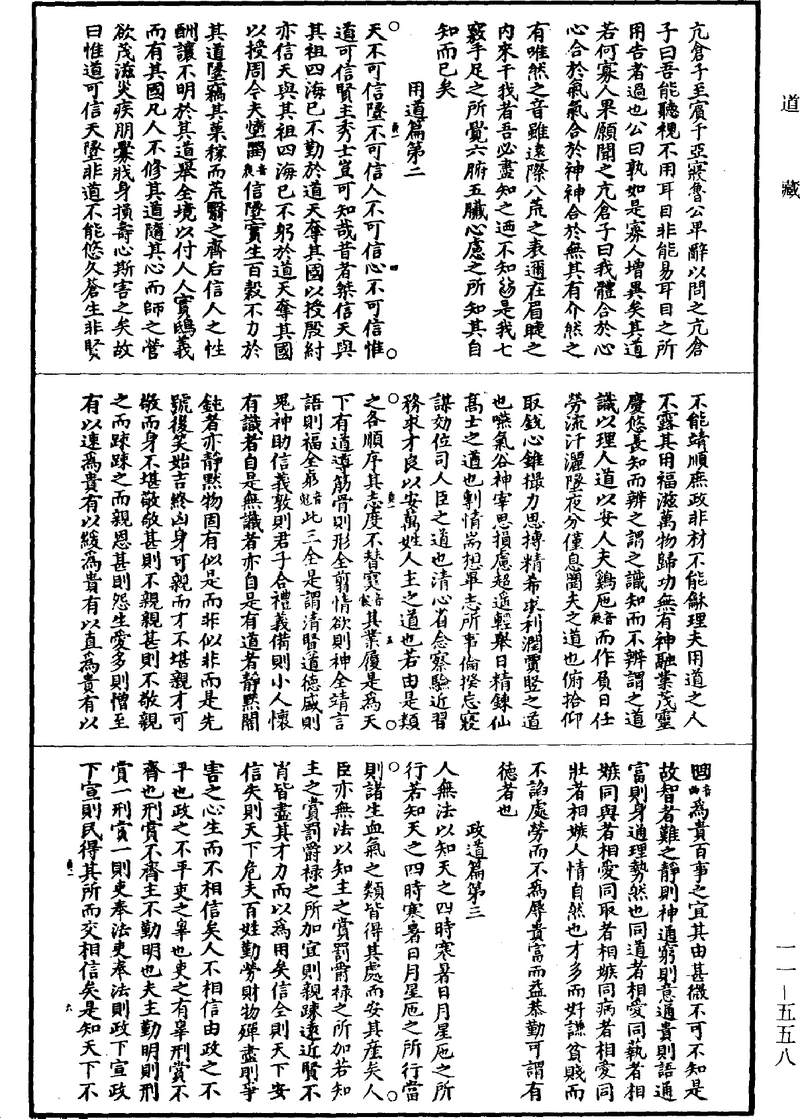 道藏
亢倉子至賓于亞寢魯公卑辭以問之亢倉
子曰吾能聽視不用耳目非能易耳目之所
用告者過也公曰孰如是寡人增異矣其道
若何寡人果願聞之亢倉子曰我體合於心
心合於氣氣合於神神合於無其有介然之
有唯然之音雖遠際八荒之表邇在眉睫之
內來干我者吾必盡知之迺不知爲是我七
竅手足之所覺六腑五臟心慮之所知其自
知而已矣
用道篇第二
天不可信墬不可信人不可信心不可信惟
道可信賢主秀士豈可知哉昔者桀信天與
其祖四海已不勤於道天奪其國以授殷紂
亦信天與其祖四海已不躬於道天奪其國
以授周今夫墯信墬實生百穀不力於
其道墬竊其菓稼而荒翳之齊后信人之性
酬讓不明於其道舉全境以付人人實鴟義
而有其國凡人不修其道隨其心而師之營
欲茂滋災疾朋舋戕身損壽心斯害之矣故
曰惟道可信天墬非道不能悠久蒼生非賢
不能靖順庶政非材不能龢理夫用道之人
不露其用福滋萬物歸功無有神融業茂靈
慶悠長知而辨之謂之識知而不辨謂之道
識以理人道以安人夫鷄而作負日任
勞流汗灑墬夜分僅息夫之道也俯拾仰
取銳心錐撮力思搏精希求利潤賈竪之道
也嚥氣谷神宰思損慮超遥輕舉日精鍊仙
高士之道也剸情嵩想畢志所事倫揆忘寢
謀効位司人臣之道也清心省念察驗近習
務求才良以安萬姓人主之道也若由是類
之各順序其志度不替其業履是爲天
下有道導筋骨則形全翦情欲則神全靖言
語則福全此三全是謂清賢道德盛則
鬼神助信義敦則君子合禮義備則小人懷
有識者自是無識者亦自是有道者靜默闇
鈍者亦靜默物固有似是而非似非而是先
號後笑始吉終凶身可親而才不堪親才可
敬而身不堪敬敬甚則不親親甚則不敬親
之而疎疎之而親恩甚則怨生愛多則憎至
有以速爲貴有以緩爲貴有以直爲貴有以
爲貴百事之宜其由甚微不可不知是
故智者難之靜則神通窮則意通貴則語通
富則身通理勢然也同道者相愛同藝者相
嫉同與者相愛同取者相嫉同病者相愛同
壯者相嫉人情自然也才多而好謙貧賤而
不諂處勞而不爲辱貴富而益恭勤可謂有
德者也
政道篇第三
人無法以知天之四時寒暑日月星辰之所
行若知天之四時寒暑日月星辰之所行當
則諸生血氣之類皆得其處而安其產矣人
臣亦無法以知主之賞罰爵祿之所加若知
主之賞罰爵祿之所加宜則親疎遠近賢不
肖皆盡其才力而以爲用矣信全則天下安
信失則天下危夫百姓勤勞財物殫盡則爭
害之心生而不相信矣人不相信由政之不
平也政之不平吏之辠也吏之有辠刑賞不
齊也刑賞不齊主不勤明也夫主勤明則刑
賞一刑賞一則吏奉法吏奉法則政下宣政
下宣則民得其所而交相信矣是知天下不
一一—五五八